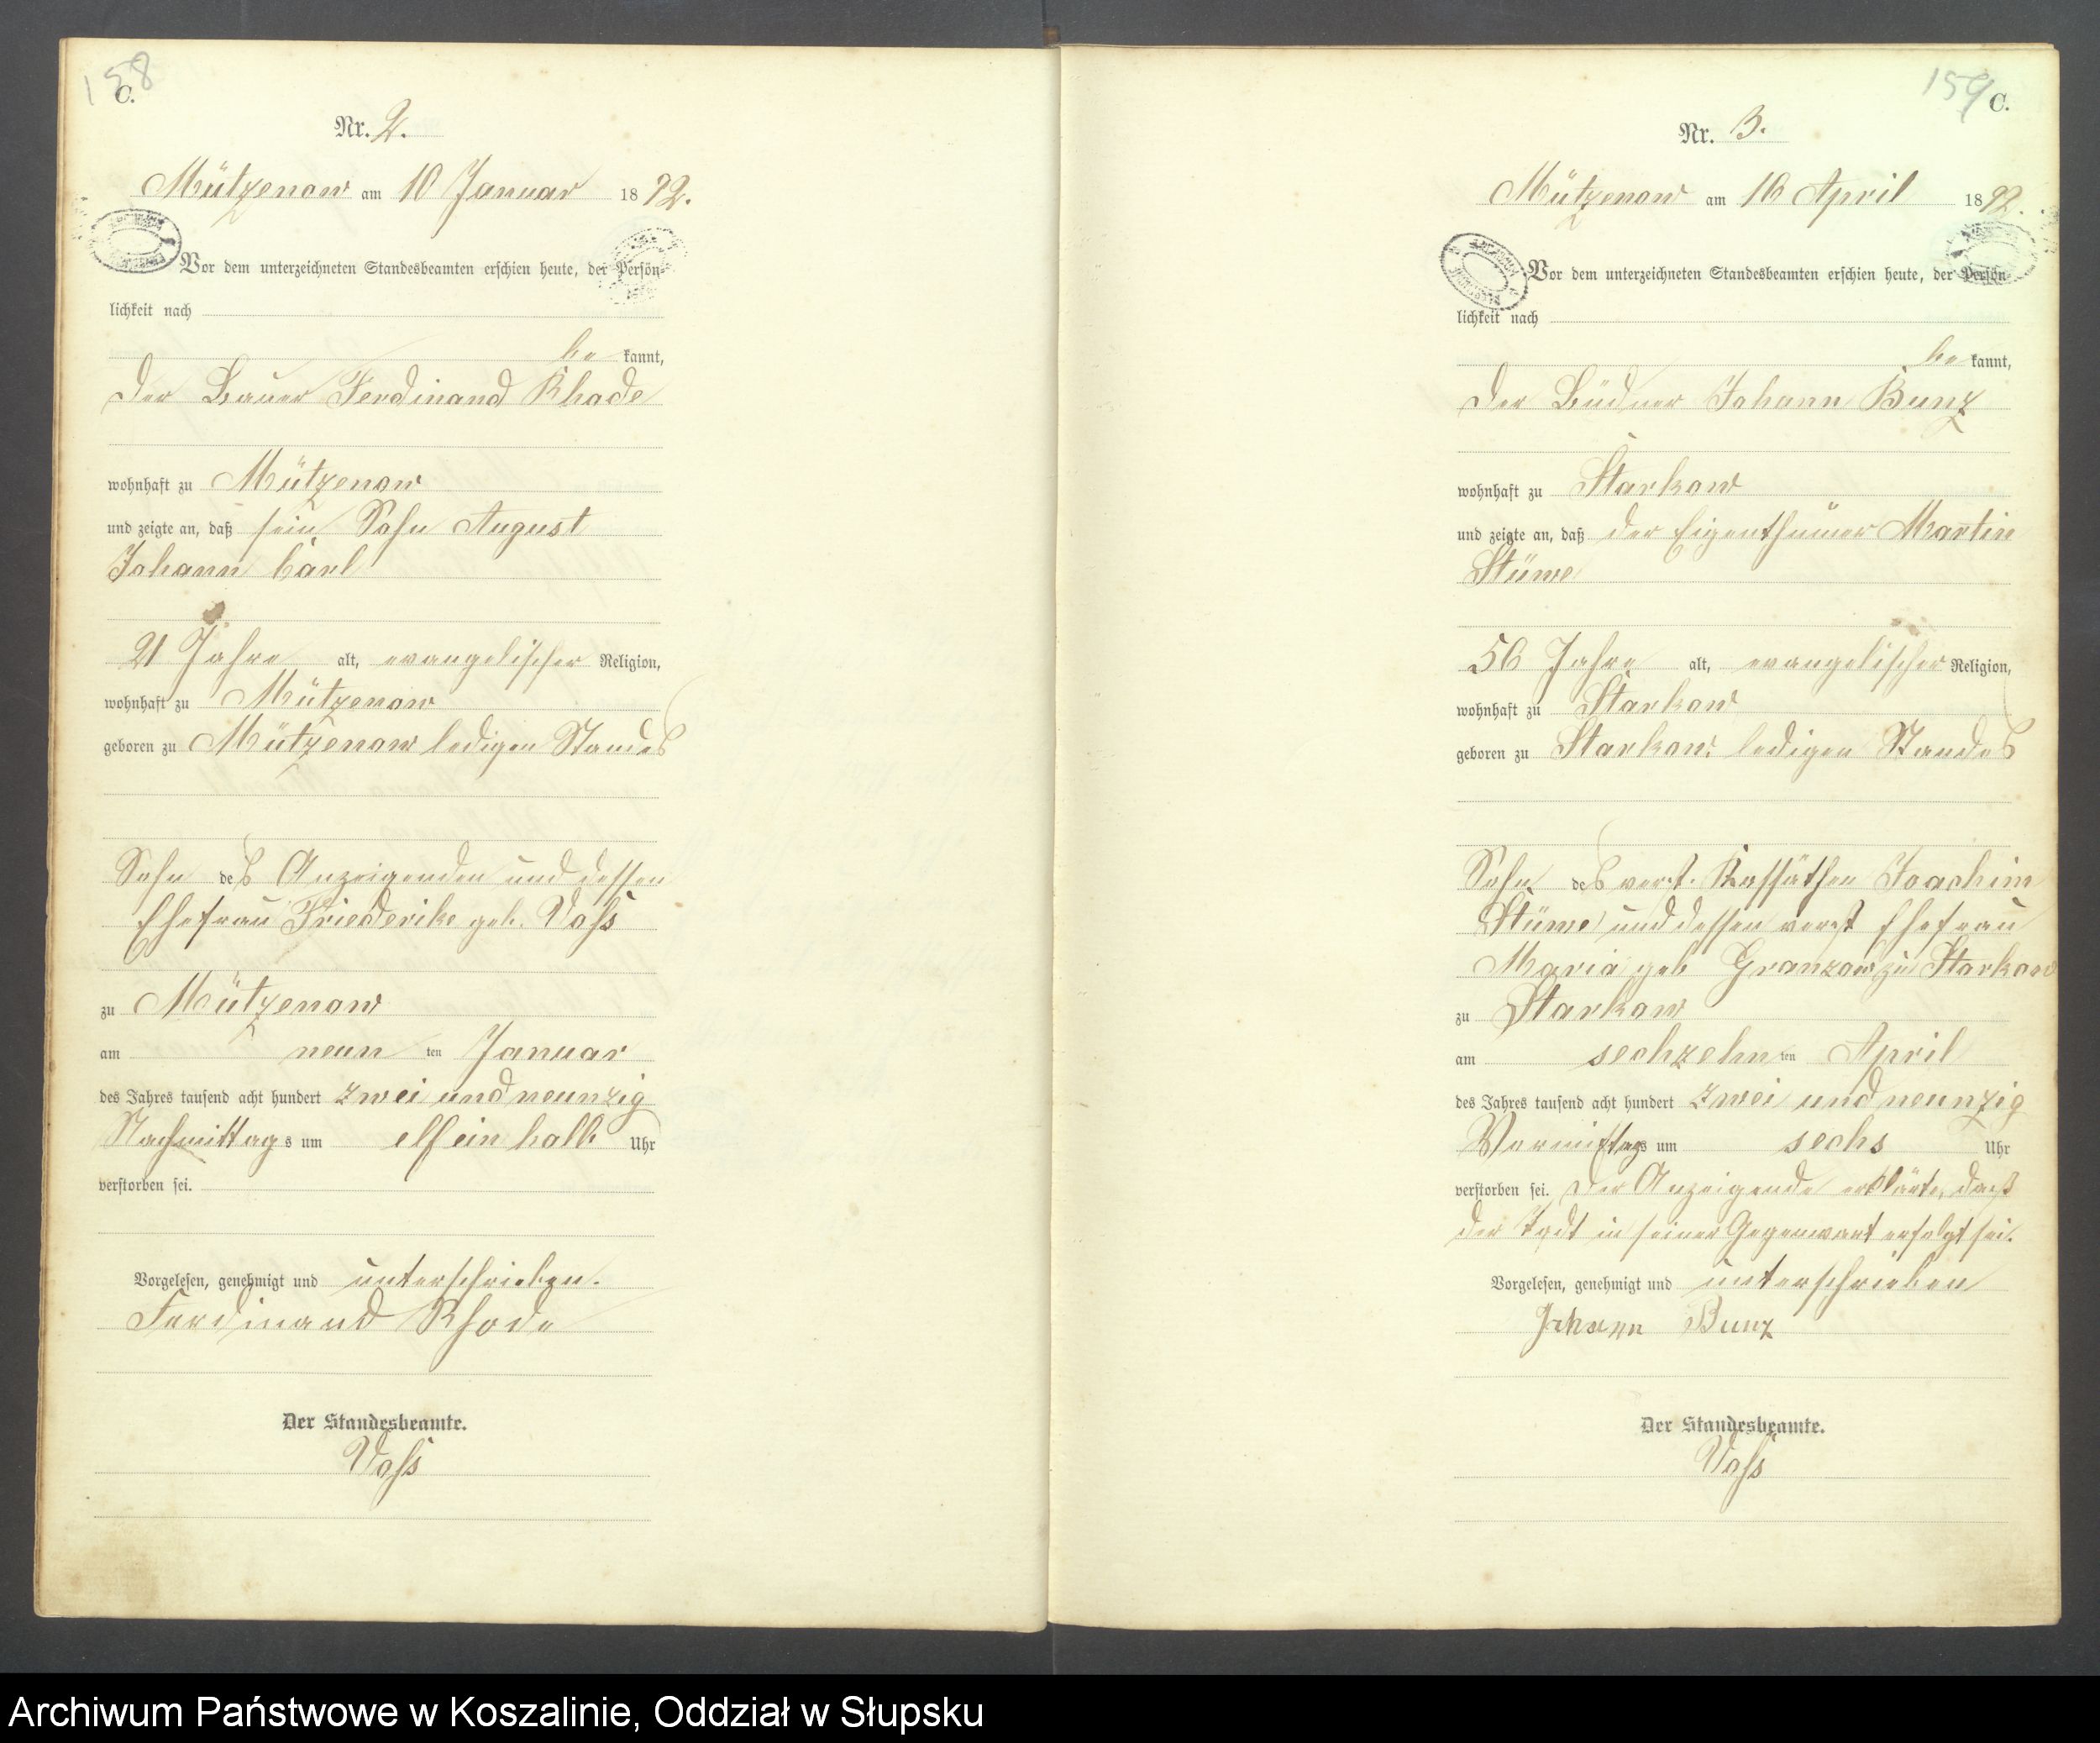 158
C.
Nr. 2.
Mützenow am 10 Januar 1892.
Vor dem unterzeichneten Standesbeamten erschien heute, der Persön-
lichkeit nach
be kannt,
der Bauer Ferdinand Rhode
wohnhaft zu Mützenow
und zeigte an, daß sein Sohn August
Johann Carl
21 Jahre alt, evangelischer Religion,
wohnhaft zu Mützenow
geboren zu Mützenow ledigen Standes
Sohn des Anzeigenden und dessen
Ehefrau Friederike geb. Voss
zu Mützenow
am neun ten Januar
des Jahres tausend acht hundert zwei und neunzig
Nachmittags um elf ein halb Uhr
verstorben sei.
Vorgelesen, genehmigt und unterschrieben.
Ferdinand Rhode
Der Standesbeamte.
Voss
159
C.
Nr. 3.
Mützenow am 16 April 1892.
Vor dem unterzeichneten Standesbeamten erschien heute, der Persön-
lichkeit nach
be kannt,
der Büdner Johann Bunz
wohnhaft zu Starkow
und zeigte an, daß der Eigenthümer Martin
Stüwe
56 Jahre alt, evangelischer Religion,
wohnhaft zu Starkow
geboren zu Starkow, ledigen Standes
Sohn des verst. Kossäthen Joachim
Stüwe und dessen verst Ehefrau
Maria geb Granzow zu Starkow
zu Starkow
am sechzehn ten April
des Jahres tausend acht hundert zwei und neunzig
Vormittags um sechs Uhr
verstorben sei. Der Anzeigende erklärte, daß
der Todt in seiner Gegenwart erfolgt sei.
Vorgelesen, genehmigt und unterschrieben
Johann Bunz
Der Standesbeamte.
Voss
Archiwum Państwowe w Koszalinie, Oddział w Słupsku